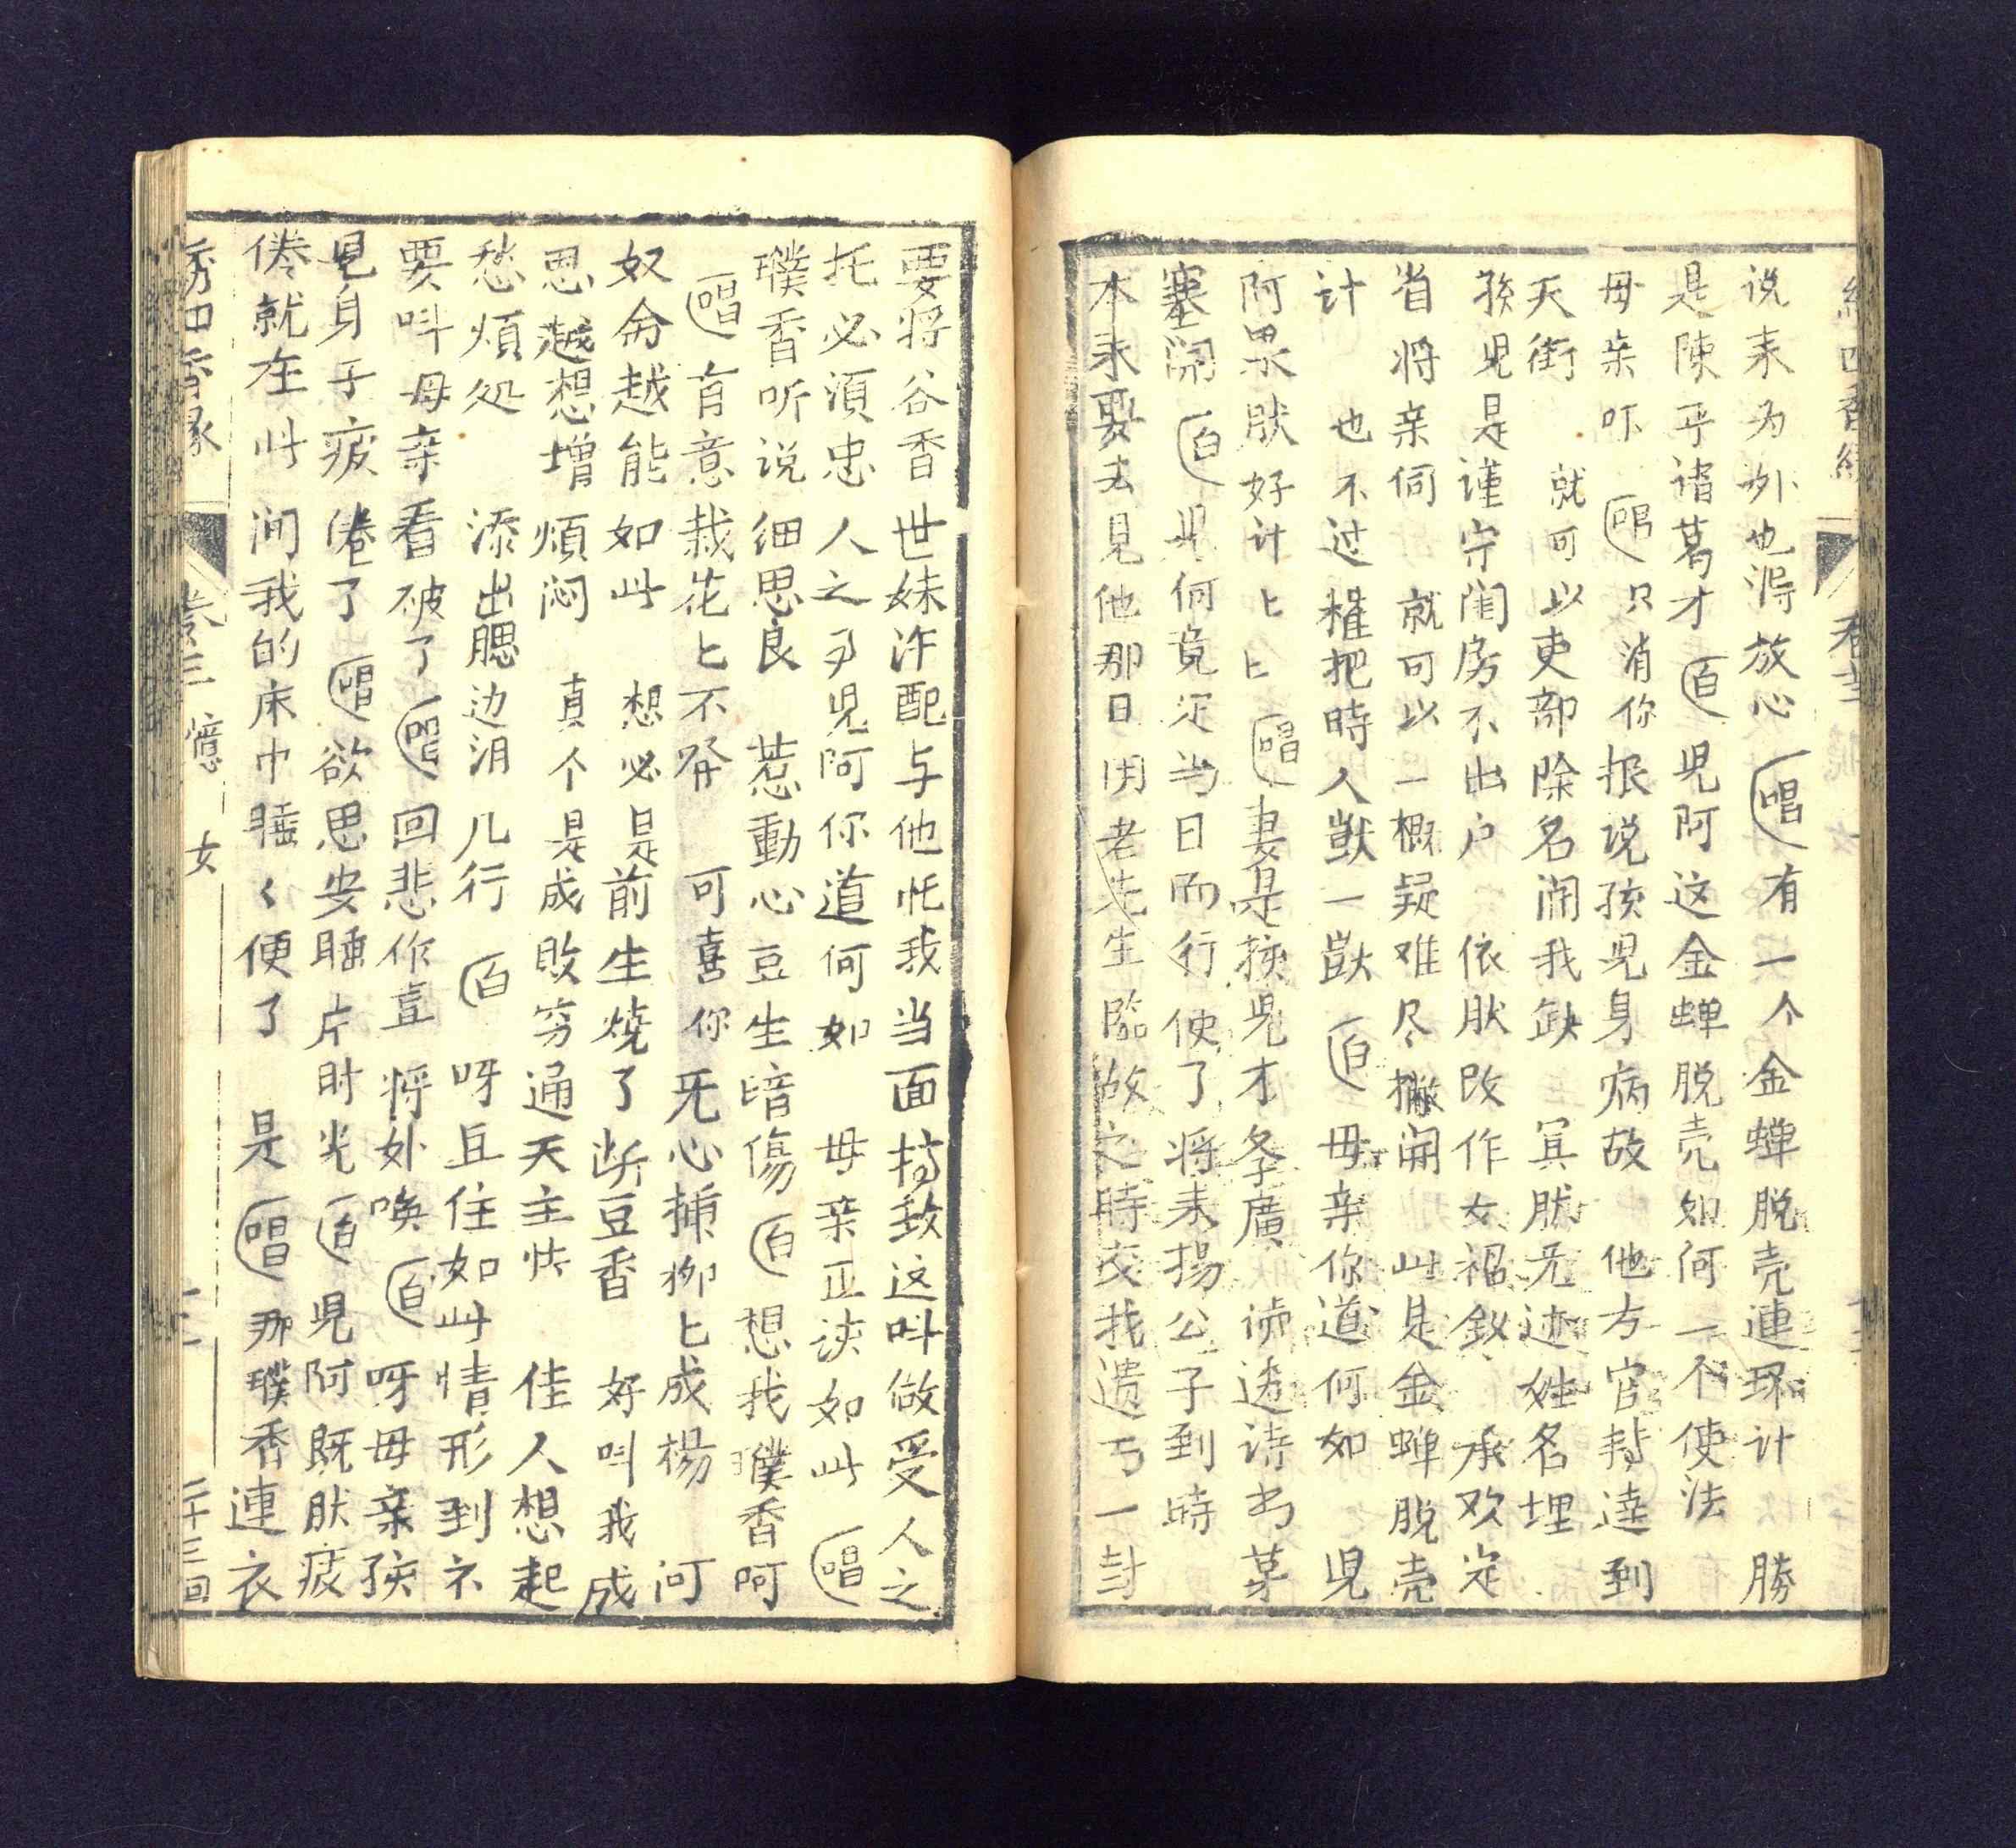 说来为外也淂放心唱有一个金蝉脱壳連环计 勝
是陳平诸葛才白児阿这金蝉脱壳如何一个使法
母亲吓唱只消你报说孩児身病故 他方官封達到
天街 就可以吏部除名開我缺 冥肰无迹姓名埋
孩児是谨守闺房不出户 依肰改作女裙釵 承欢定
省将亲伺 就可以一概疑难尽撇開 此是金蝉脱壳
计 也不过權把時人獃一獃白母亲你道何如 児
阿果肰好计匕匕唱妻是孩児才学廣 读透诗书茅
塞開白児何竟定当日而行便了将来揚公子到時
本来要去見他那日因老先生臨故之時交我遗丂一封
要将谷香世妹许配与他托我当面搞致这叫做受人之
托必須忠人之予児阿你道何如 母亲正该如此唱
璞香听说细思良 惹動心豆生暗傷白想我璞香阿
唱肓意栽花匕不發 可喜你无心揷柳匕成楊 问
奴侖越能如此 想必是前生燒了断豆香 好叫我成
思越想增煩闷 真个是成败穷通天主快 佳人想起
愁煩处 添出腮边泪几行白呀且住如此情形到不
要叫母亲看破了唱回悲作喜将外唤白呀母亲孩
児身子疲倦了唱欲思安睡片时光白児阿既肰疲
倦就在此间我的床巾睡〻便了 是唱那璞香連衣
绣四香缘 卷三 憶女 二十三回